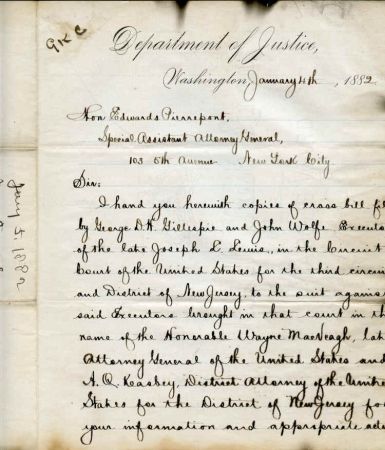 G K C
Department of Justice,
Washington, January 4th, 1882
Hon Edwards Pierrepont,
Special Assistant Attorney General,
103 5th Avenue New York City.
Sir:
I hand you herewith copies of cross bill fil
by George D.H. Gillespie and John Wolfe, Executo
of the late Joseph L. Lewis, in the Circuit
Court of the United States for the third circui
and District of New Jersey, to the suit agains
said Executors brought in that court in th
name of the Honorable Wayne MacVeagh, lat
Attorney General of the United States and
A. Q. Keasbey, District Attorney of the Unite
States for the District of New Jersey fo
your information and appropriate acti
1882